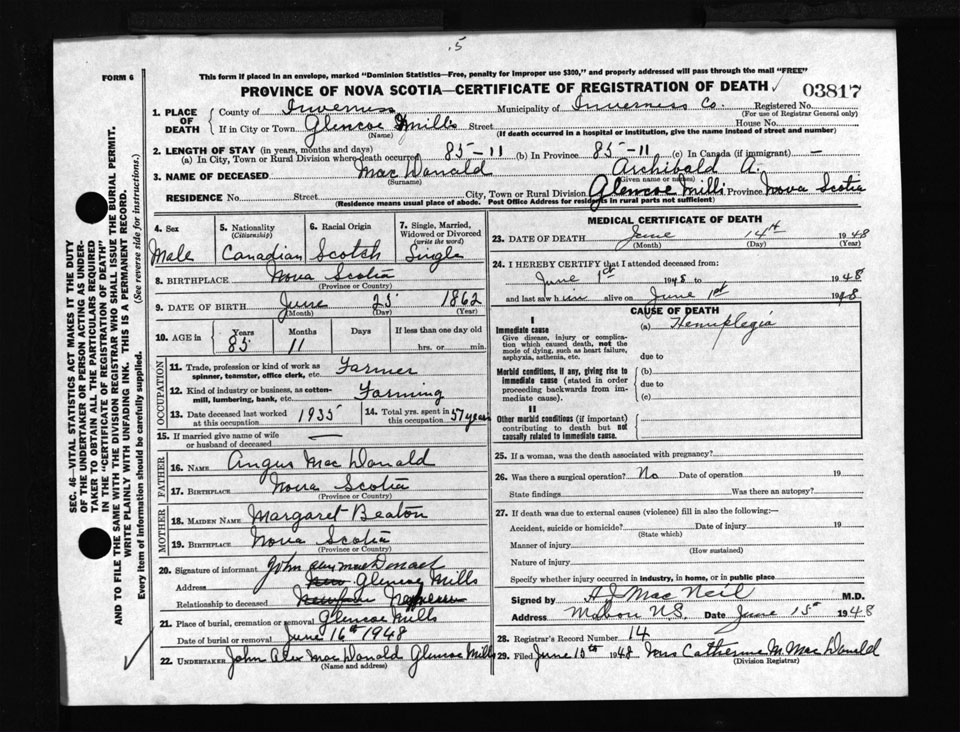 .5
FORM 6
This form if placed in an envelope, marked "Dominion Statistics—Free, penalty for improper use $300," and properly addressed will pass through the mail "FREE"
PROVINCE OF NOVA SCOTIA—CERTIFICATE OF REGISTRATION OF DEATH 03817
1. PLACE OF DEATH
County of Inverness Municipality of Inverness Co. Registered No.
(For use of Registrar General only)
If in City or Town Glencoe Mills Street House No.
(Name) (If death occurred in a hospital or institution, give the name instead of street and number)
2. LENGTH OF STAY (in years, months and days)
(a) In City, Town or Rural Division where death occurred 85-11 (b) In Province 85-11 (c) In Canada (if immigrant) —
3. NAME OF DECEASED Mac Donald Archibald A.
(Surname) (Given name or names)
RESIDENCE No. Street City, Town or Rural Division Glencoe Mills Province Nova Scotia
(Residence means usual place of abode. Post Office Address for residents in rural parts not sufficient)
4. Sex
Male
5. Nationality
(Citizenship)
Canadian
6. Racial Origin
Scotch
7. Single, Married, Widowed or Divorced
(write the word)
Single
8. BIRTHPLACE Nova Scotia
(Province or Country)
9. DATE OF BIRTH June 25 1862
(Month) (Day) (Year)
10. AGE in Years Months Days If less than one day old
85 11 hrs. or min.
OCCUPATION
11. Trade, profession or kind of work as Farmer
spinner, teamster, office clerk, etc.
12. Kind of industry or business, as cotten-
mill, lumbering, bank, etc. Farming
13. Date deceased last worked
at this occupation 1935
14. Total yrs. spent in
this occupation 57 years
15. If married give name of wife
or husband of deceased —
FATHER
16. NAME Angus Mac Donald
17. BIRTHPLACE Nova Scotia
(Province or Country)
MOTHER
18. MAIDEN NAME Margaret Beaton
19. BIRTHPLACE Nova Scotia
(Province or Country)
20. Signature of informant John Alex MacDonald
Address Glencoe Mills
Relationship to deceased
21. Place of burial, cremation or removal Glencoe Mills
Date of burial or removal June 16th 1948
22. UNDERTAKER John Alex Mac Donald Glencoe Mills
(Name and address)
MEDICAL CERTIFICATE OF DEATH
23. DATE OF DEATH June 14th 1948
(Month) (Day) (Year)
24. I HEREBY CERTIFY that I attended deceased from:
June 1st 1948 to 1948
and last saw him alive on June 1st 1948
CAUSE OF DEATH
I
Immediate cause
Give disease, injury or complica-
tion which caused death, not the
mode of dying, such as heart failure,
asphyxia, asthenia, etc.
(a) Hemiplegia
due to
Morbid conditions, if any, giving rise to
immediate cause (stated in order
proceeding backwards from im-
mediate cause).
(b)
due to
(c)
II
Other morbid conditions (if important)
contributing to death but not
causally related to immediate cause.
25. If a woman, was the death associated with pregnancy?
26. Was there a surgical operation? No Date of operation 19
State findings Was there an autopsy?
27. If death was due to external causes (violence) fill in also the following:—
Accident, suicide or homicide? Date of injury 19
(State which)
Manner of injury
(How sustained)
Nature of injury
Specify whether injury occurred in industry, in home, or in public place
Signed by H J Mac Neil M.D.
Address Mabou N.S. Date June 15 1948
28. Registrar's Record Number 14
29. Filed June 15th 1948 Mrs Catherine M. Mac Donald
(Division Registrar)
SEC. 46—VITAL STATISTICS ACT MAKES IT THE DUTY
OF THE UNDERTAKER OR PERSON ACTING AS UNDER-
TAKER TO OBTAIN ALL THE PARTICULARS REQUIRED
IN THE "CERTIFICATE OF REGISTRATION OF DEATH"
AND TO FILE THE SAME WITH THE DIVISION REGISTRAR WHO SHALL ISSUE THE BURIAL PERMIT.
WRITE PLAINLY WITH UNFADING INK. THIS IS A PERMANENT RECORD.
Every item of information should be carefully supplied. (See reverse side for instructions.)